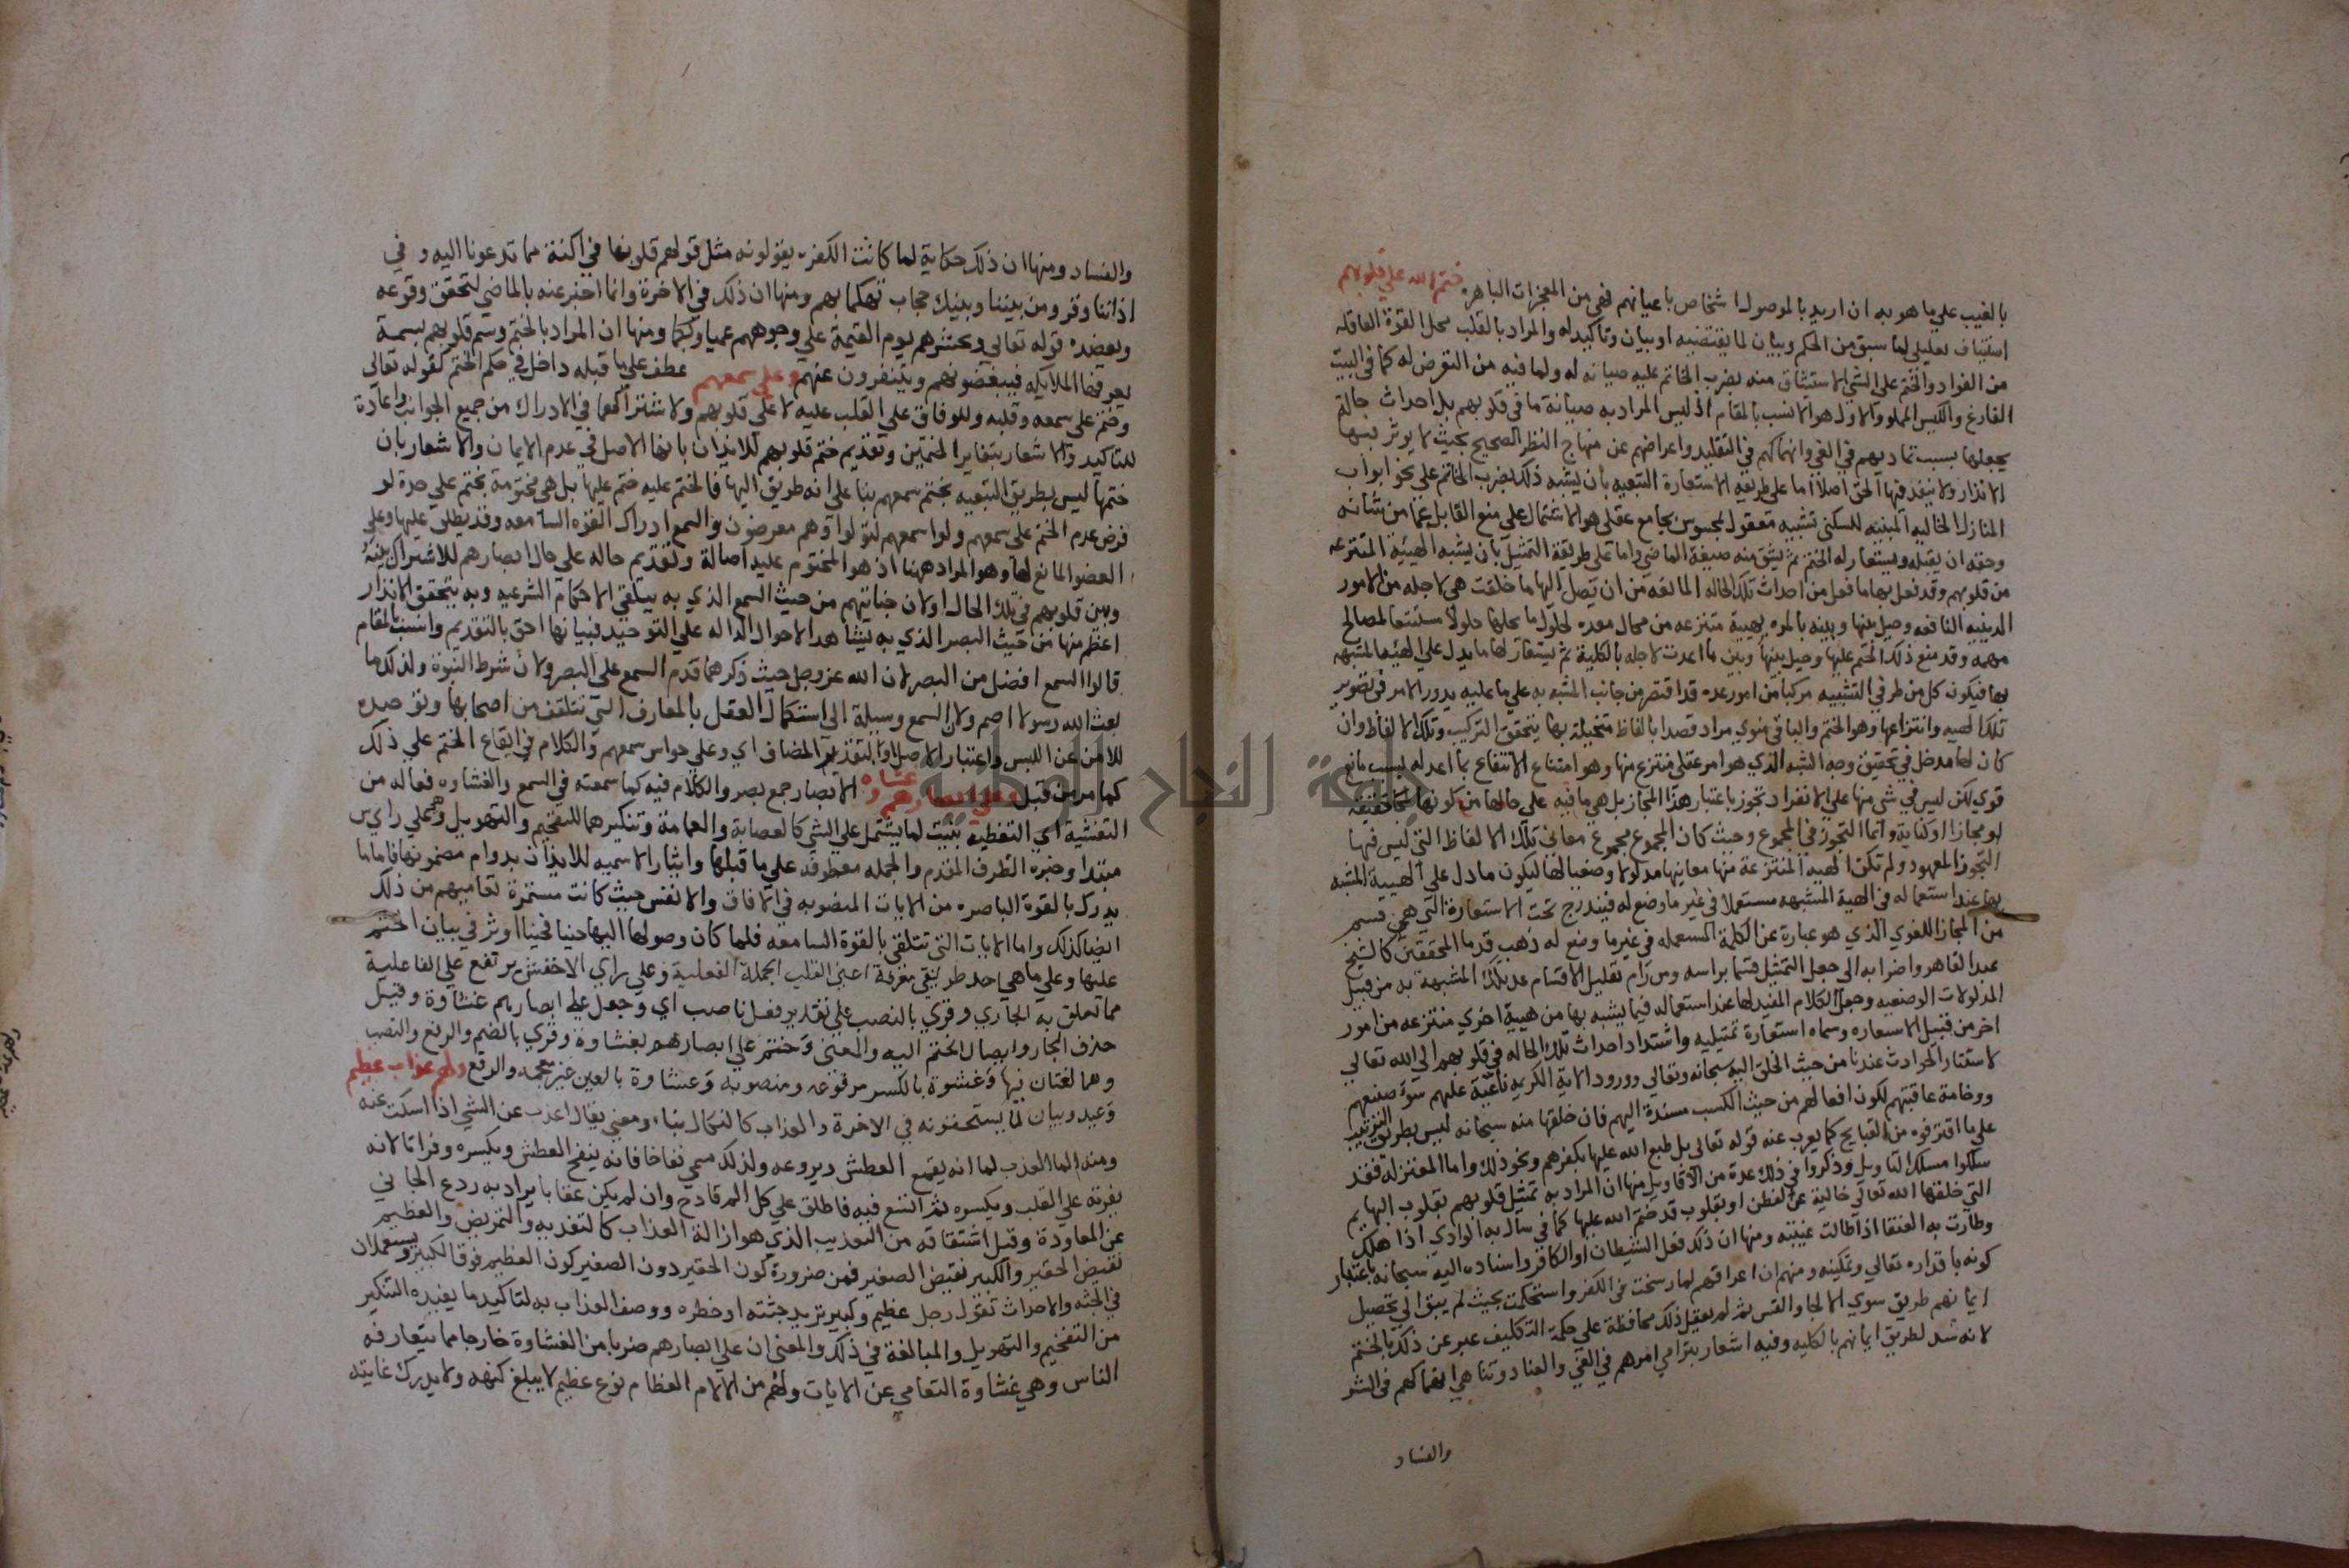 بالغيب على ما هو به ان اريد بالموصول اشخاص باعيانهم فهي من المعجزات الباهرة ختم الله على قلوبهم
استيناف تعليلي لما سبق من الحكم وبيان لما يقتضيه او بيان وتاكيد له والمراد بالقلب محل القوة العاقلة
من الفواد والختم على الشي الاستيثاق منه بضرب الخاتم عليه صيانة له ولما فيه من التعرض له كما في البيت
الفارغ والكيس المملو والاول هو الانسب بالمقام اذ ليس المراد به صيانة ما في قلوبهم بل احداث حالة
يجعلها بسبب تماديهم في الغي وانهماكهم في التقليد واعراضهم عن منهاج النظر الصحيح بحيث لا يوثر فيها
الانذار ولا ينفذ فيها الحق اصلا اما على طريقة الاستعارة التبعية بان يشبه ذلك بضرب الخاتم على نحو ابواب
المنازل الخالية المبنية للسكنى تشبيه معقول بمحسوس بجامع عقلي هو الاشتمال على منع القابل عما من شانه
وحقه ان يقبله ويستعار له الختم ثم يشتق منه صيغة الماضي واما على طريقة التمثيل بان يشبه الهيئة المنتزعة
من قلوبهم وقد فعل بها ما فعل من احداث تلك الحالة المانعة من ان يصل اليها ما خلقت هي لاجله من الامور
الدينية النافعة وحيل بينها وبينه بالمرة بهيئة منتزعة من محال معدة لحلول ما يحلها حلولا مستتبعا لمصالح
مهمة وقد منع ذلك الختم عليها وحيل بينها وبين ما اعدت لاجله بالكلية ثم يستعار لها ما يدل على الهيئة المشبه
بها فيكون كل من طرفي التشبيه مركبا من امور عدة قد اقتصر من جانب المشبه به على ما عليه يدور الامر في تصوير
تلك الهيئة وانتزاعها وهو الختم والباقي منوي مراد قصدا بالفاظ متخيلة بها يتحقق التركيب وتلك الالفاظ وان
كان لها مدخل في تحقيق وجه الشبه الذي هو امر عقلي منتزع منها وهو امتناع الانتفاع بما اعد له بسبب مانع
قوي لكن ليس في شي منها على الانفراد تجوز باعتبار هذا المجاز بل هي باقية على حالها من كونها حقيقة
او مجازا او كناية وانما التجوز في المجموع وحيث كان المجموع مجموع معاني تلك الالفاظ التي ليس فيها
التجوز المعهود ولم تكن الهيئة المنتزعة منها معانيها مدلولا وضعيا لها ليكون ما دل على الهيئة المشبه
بها عند استعماله في الهيئة المشبهة مستعملا في غير ما وضع له فيندرج تحت الاستعارة التي هي قسم
من المجاز اللغوي الذي هو عبارة عن الكلمة المستعملة في غير ما وضع له ذهب قدما المحققين كالشيخ
عبد القاهر واضرابه الى جعل التمثيل قسما براسه ومن رام تقليل الاقسام عد تلك المشبهة به من قبيل
المدلولات الوضعية وجعل الكلام المفيد لها عند استعماله فيما يشبه بها من هيئة اخرى منتزعة من امور
اخر من قبيل الاستعارة وسماه استعارة تمثيلية واسناد احداث تلك الحالة في قلوبهم الى الله تعالى
لاستناد الحوادث عندنا من حيث الخلق اليه سبحانه وتعالى وورود الاية الكريمة ناعية عليهم سوء صنيعهم
ووخامة عاقبتهم لكون افعالهم من حيث الكسب مسندة اليهم فان خلقها منه سبحانه ليس بطريق
على ما اقترفوه من القبايح كما يعرب عنه قوله تعالى بل طبع الله عليها بكفرهم ونحو ذلك واما المعتزلة فقد
سلكوا مسلك التاويل وذكروا في ذلك عدة من الاقاويل منها ان المراد به تمثيل قلوبهم بقلوب البهايم
التي خلقها الله تعالى خالية عن الفطن او بقلوب قد ختم الله عليها كما في سال به الوادي اذا هلك
وطارت به العنقا اذا طالت غيبته ومنها ان ذلك فعل الشيطان او الكافر واسناده اليه سبحانه باعتبار
كونه باقداره تعالى وتمكينه ومنهم ان اعراقهم لما رسخت في الكفر واستحكمت بحيث لم يبق الى تحصيل
ايمانهم طريق سوى الالجا والقسر ثم لم يفعل ذلك محافظة على حكمة التكليف عبر عن ذلك بالختم
لانه سد لطريق ايمانهم بالكلية وفيه اشعار بترامي امرهم في الغي والعناد وتناهي انهماكهم في الشر
والفساد
والفساد ومنها ان ذلك حكاية لما كانت الكفرة يقولونه مثل قولهم قلوبنا في اكنة مما تدعونا اليه وفي
اذاننا وقر ومن بيننا وبينك حجاب تهكما بهم ومنها ان ذلك في الاخرة وانما اخبر عنه بالماضي لتحقق وقوعه
ويعضده قوله تعالى ونحشرهم يوم القيمة على وجوههم عميا وبكما ومنها ان المراد بالختم وسم قلوبهم بسمة
يعرفها الملايكة فيبغضونهم ويتنفرون عنهم وعلى سمعهم عطف على ما قبله داخل في حكم الختم كقوله تعالى
وختم على سمعه وقلبه وللوفاق على القلب عليه لا على قلوبهم ولاشتراكهما في الادراك من جميع الجوانب واعادة
للتاكيد والاشعار بتغاير الختمين وتقديم ختم قلوبهم للايذان بانها الاصل في عدم الايمان والاشعار بان
ختمها ليس بطريق التبعية بختم سمعهم بنا على انه طريق اليها فالختم عليه ختم عليها بل هي مختومة بختم على حدة لو
فرض عدم الختم على سمعهم ولو اسمعهم لتولوا وهم معرضون والسمع ادراك القوة السامعة وقد يطلق عليها وعلى
العضو المانع لها وهو المراد ههنا اذ هو المختوم عليه اصالة وتقديم حاله على حال ابصارهم للاشتراك بينه
وبين قلوبهم في تلك الحال او لان جنايتهم من حيث السمع الذي به يتلقى الاحكام الشرعية وبه يتحقق الانذار
اعظم منها من حيث البصر الذي به يشاهد الاحوال الدالة على التوحيد فبيانها احق بالتقديم وانسب بالمقام
قالوا السمع افضل من البصر لان الله عز وجل حيث ذكرهما قدم السمع على البصر ولان شرط النبوة ولذلك ما
بعث الله رسولا اصم ولان السمع وسيلة الى استكمال العقل بالمعارف التي تتلقف من اصحابها وتوحيده
للامن عن اللبس واعتبار الاصل او لتقدير المضاف اي وعلى حواس سمعهم والكلام في ايقاع الختم على ذلك
كما مر من قبل وعلى ابصارهم غشاوة الابصار جمع بصر والكلام فيه كما سمعته في السمع والغشاوة فعالة من
التغشية اي التغطية بنيت لما يشتمل على الشي كالعصابة والعمامة وتنكيرهما للتفخيم والتهويل وهي على راي س
مبتدا وخبره الظرف المقدم والجملة معطوفة على ما قبلها وايثار الاسمية للايذان بدوام مضمونها فان ما
يدرك بالقوة الباصرة من الايات المنصوبة في الافاق والانفس حيث كانت مستمرة تعاميهم من ذلك
ايضا كذلك واما الايات التي تتلقى بالقوة السامعة فلما كان وصولها اليها حينا فحينا اوثر في بيان الختم
عليها وعلى ما هي احد طريقي معرفة اعني القلب الجملة الفعلية وعلى راي الاخفش مرتفع على الفاعلية
مما تعلق به الجاري وقري بالنصب على تقدير فعل ناصب اي وجعل على ابصارهم غشاوة وقيل
حذف الجار وايصال الختم اليه والمعنى وختم على ابصارهم بغشاوة وقري بالضم والرفع والنصب
وهما لغتان فيها وغشوة بالكسر مرفوعة ومنصوبة وعشاوة بالعين غير معجمة والرفع ولهم عذاب عظيم
وعيد وبيان لما يستحقونه في الاخرة والعذاب كالنكال بناء ومعنى يقال اعذب عن الشي اذا امسك عنه
ومنه الما العذب لما انه يقمع العطش ويردعه ولذلك سمي نفاخا فانه ينفخ العطش ويكسره وفراتا لانه
يفرته على القلب ويكسره ثم اتسع فيه فاطلق على كل الم فادح وان لم يكن عقابا يراد به ردع الجاني
عن المعاودة وقيل اشتقاقه من التعذيب الذي هو ازالة العذاب كالتقذية والتمريض والعظيم
نقيض الحقير والكبير نقيض الصغير فمن ضرورة كون الحقير دون الصغير كون العظيم فوق الكبير ويستعملان
في الجثة والاحداث تقول رجل عظيم وكبير تريد جثته او خطره ووصف العذاب به لتاكيد ما يفيده التنكير
من التفخيم والتهويل والمبالغة في ذلك والمعنى ان على ابصارهم ضربا من الغشاوة خارجا مما يتعارفه
الناس وهي غشاوة التعامي عن الايات ولهم من الالام العظام نوع عظيم لا يبلغ كنهه ولا يدرك غايته
جامعة النجاح الوطنية